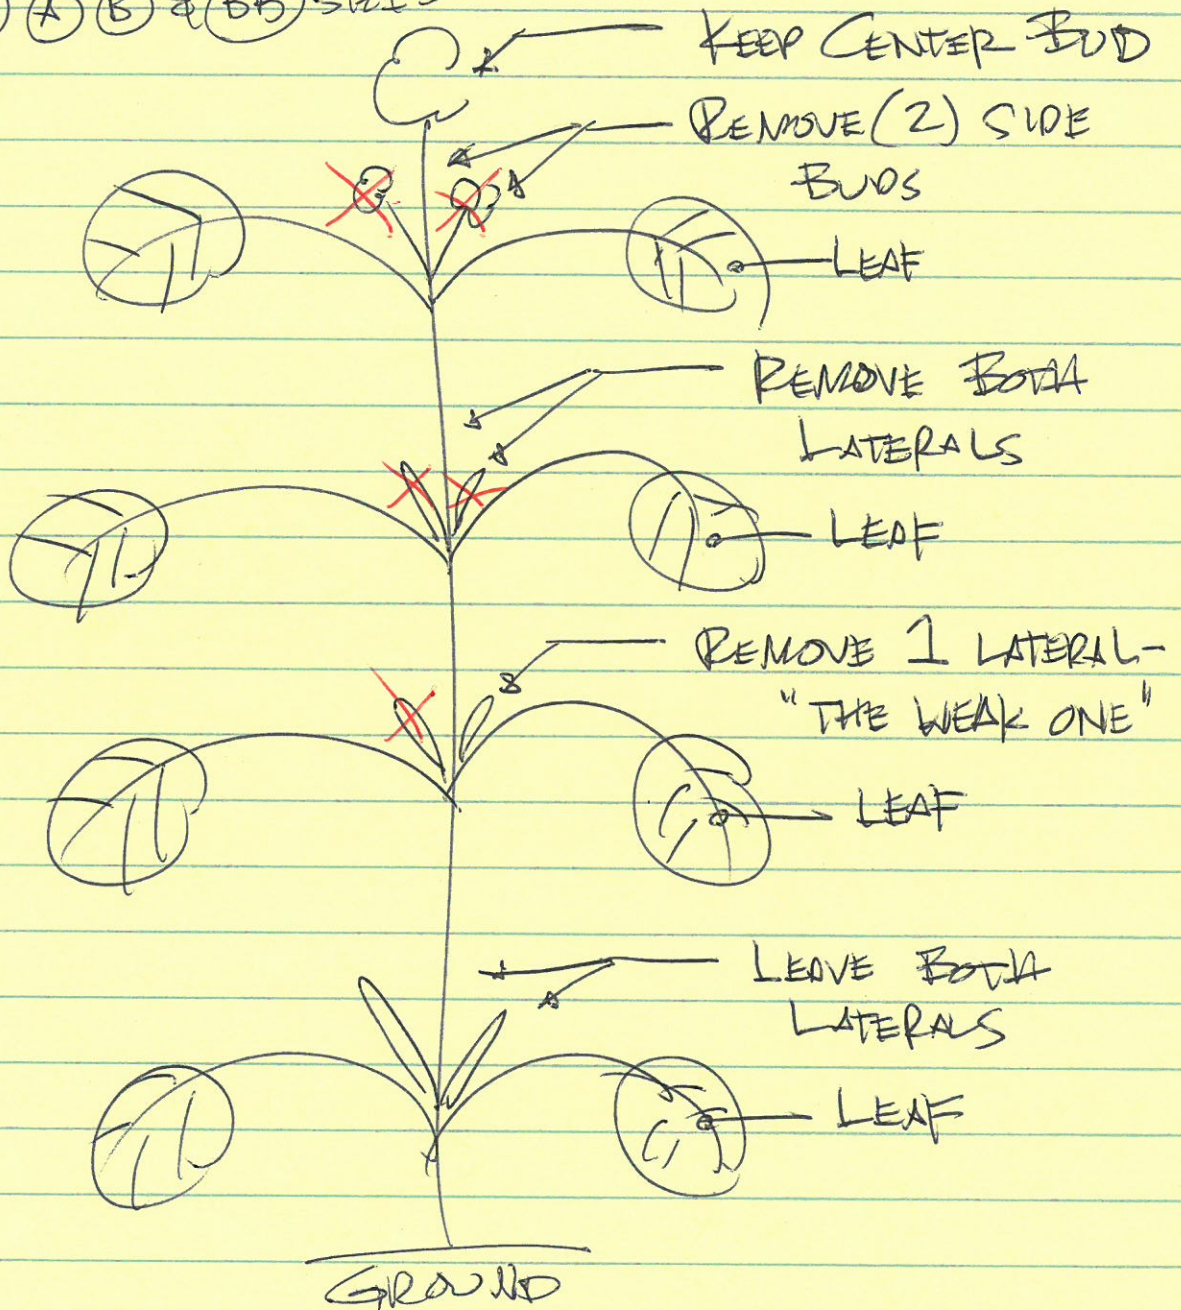 A B & BB SIZES
KEEP CENTER BUD
REMOVE (2) SIDE
BUDS
LEAF
REMOVE BOTH
LATERALS
LEAF
REMOVE 1 LATERAL-
"THE WEAK ONE"
LEAF
LEAVE BOTH
LATERALS
LEAF
GROUND